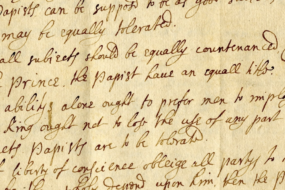 Papists can be suppos'd to be as good sub
may be equally tolerated.
all subjects should be equally countenanced
Prince, the Papist have an equall title
ability alone ought to prefer men to imploy
king ought not to lose the use of any part
ects Papists are to be tolerated.
liberty of conscience obleige all parties to
depend upon him, then the P